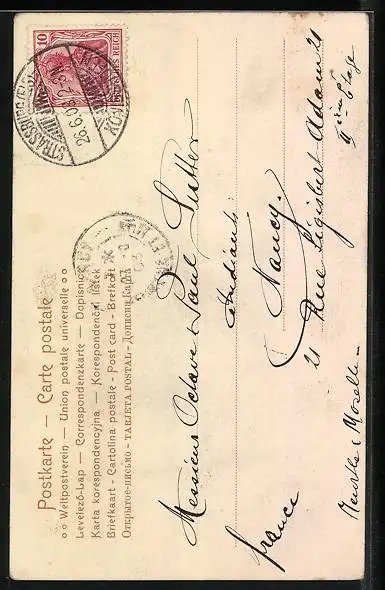 Postkarte — Carte postale
Weltpostverein — Union postale universelle
Levelező-Lap — Correspondenzkarte — Dopisnice
Karta korespondencyjna — Korespondenční lístek
Briefkaart - Cartolina postale - Post card - Brefkort
Открытое-письмо - TARJETA POSTAL - Дописна Карта
10
DEUTSCHES REICH
STRASSBURG
26.6.0
Messieurs Octave & Paul Sutter
Etudiants
Nancy.
21 Rue Sigisbert Adam 21
II ième Etage
France
Meurthe & Moselle